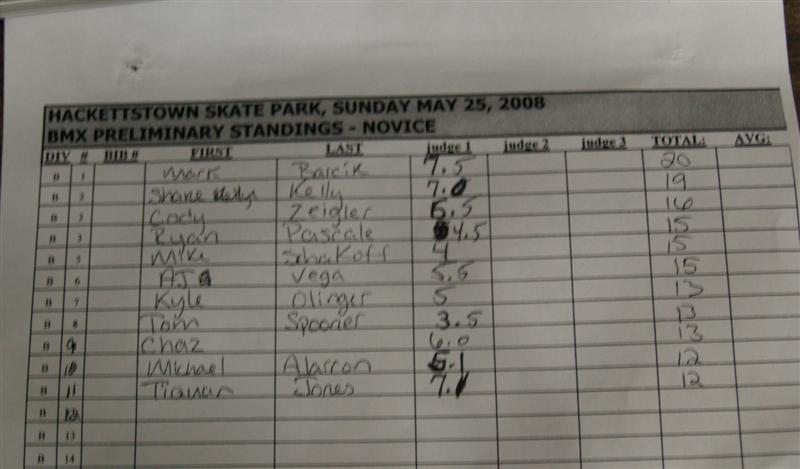 HACKETTSTOWN SKATE PARK, SUNDAY MAY 25, 2008
BMX PRELIMINARY STANDINGS - NOVICE
DIV # BIB# FIRST LAST judge 1 judge 2 judge 3 TOTAL: AVG:
B 1 Mark Barcik 7.5 20
B 2 Shane Kelly 7.0 19
B 3 Cody Zeigler 6.5 16
B 3 Ryan Pascale 4.5 15
B 5 Mike Schakoff 4 15
B 6 AJ Vega 5.5 15
B 7 Kyle Olinger 5 13
B 8 Tom Spooner 3.5 13
B 9 Chaz 6.0 13
B 10 Michael Alarcon 5.1 12
B 11 Jones 7.1 12
B 12
B 13
B 14